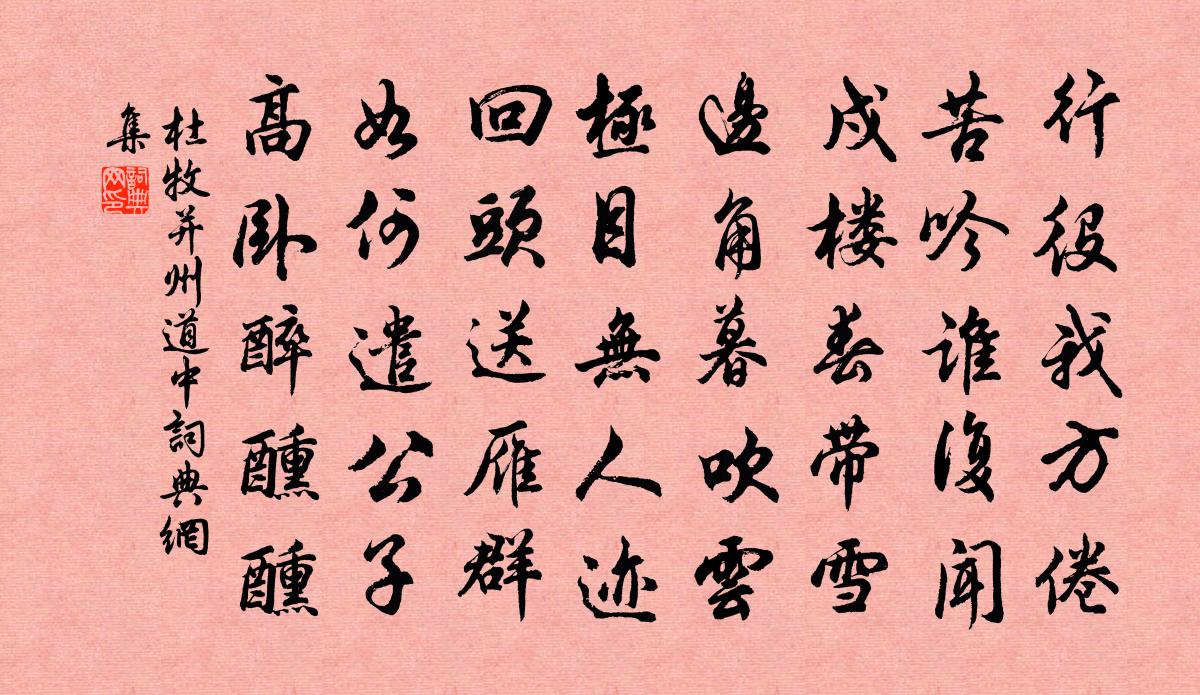 行役我方倦
苦吟谁復闻
戍楼春带雪
邊角暮吹雲
極目無人迹
回頭送雁群
如何遣公子
高卧醉醺醺
杜牧并州道中詞典網
集
詞典
网印